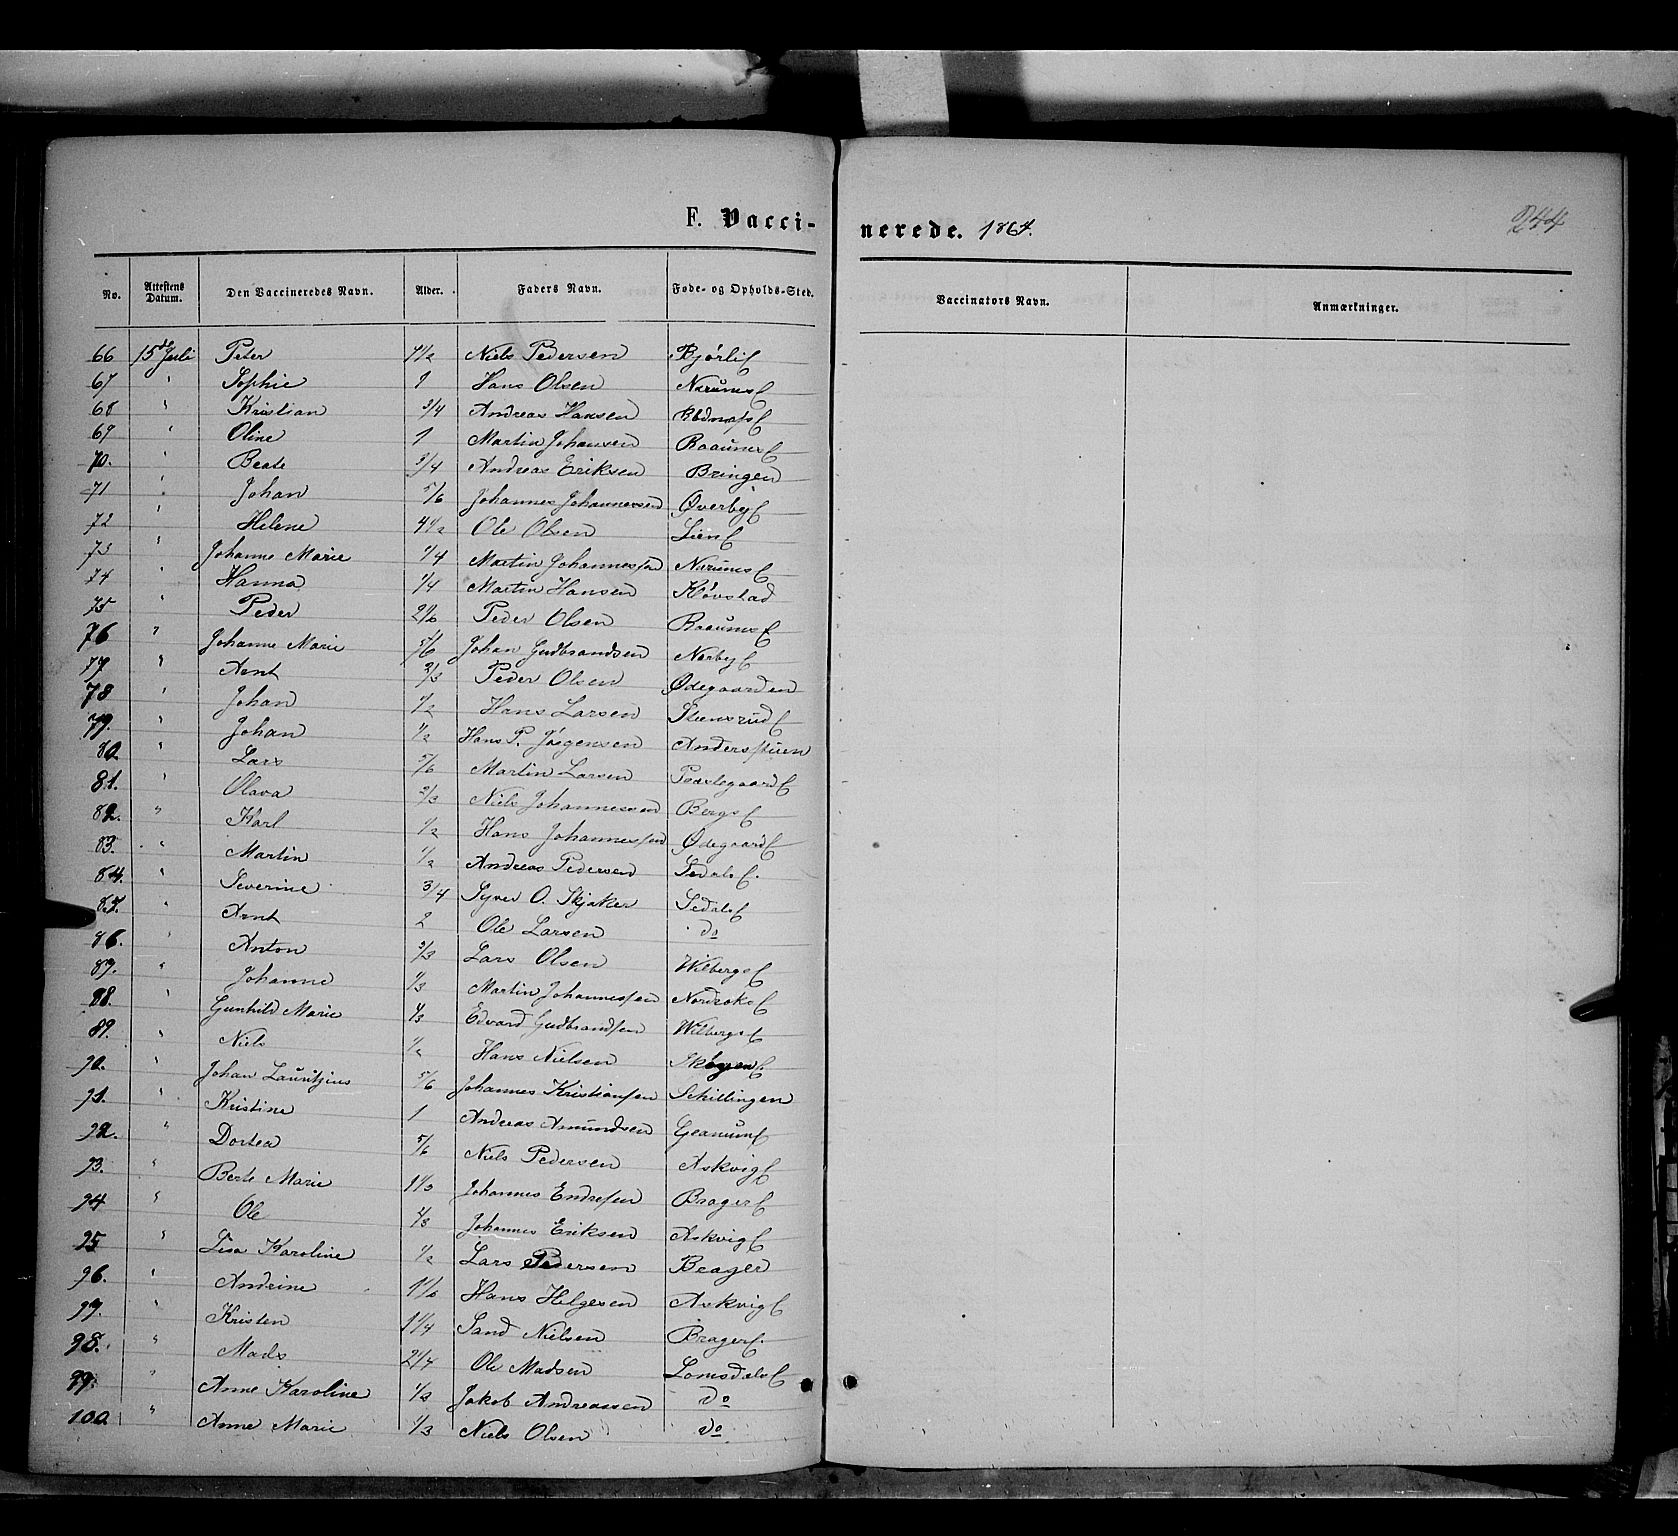 F. Vacci-
nerede. 1864.
244
No. Attestens Datum. Den Vaccineredes Navn. Alder. Faders Navn. Føde- og Opholds-Sted. Vaccinators Navn. Anmærkninger.
66 15de Juli Peter 4 1/2 Niels Pedersen Bjørli
67 " Sophie 1 Hans Olsen Narumse
68 " Kristian 3/4 Andreas Hansen
69 " Oline 1 Martin Johansen Raaumse
70. " Beate 3/4 Andreas Eriksen Bringen
71 " Johan 5/6 Johannes Johannessen Øverbye
72 " Helene 4 1/2 Ole Olsen Lien
73 " Johanne Marie 1/4 Martin Johannessen Narumse
74 " Hanna 1/4 Martin Hansen Kløvstad
75 " Peder 2 1/6 Peder Olsen Raaumse
76 " Johanne Marie 5/6 Johan Gudbrandsen Norbye
77 " Arnt 2/3 Peder Olsen Ødegaarden
78 " Johan 1/2 Hans Larsen Steensrud
79. " Johan 1/2 Hans P. Jørgensen Andersstuen
80 " Lars 5/6 Martin Larsen
81. " Olava 2/3 Niels Johannessen Bergs
82. " Karl 1/2 Hans Johannessen Ødegaard
83. " Martin 1/2 Andreas Pedersen Sedals
84. " Severine 3/4 Syver O. Skjaker Sedals
85. " Arnt 2 Ole Larsen do
86. " Anton 2/3 Lars Olsen Wilbergs
87. " Johanne 1/3 Martin Johannessen Nordraks
88. " Gunhild Marie 1/3 Edvard Gudbrandsen Wilbergs
89. " Niels 1/2 Hans Nielsen Skogen
90. " Johan Lauritzius 5/6 Johannes Kristiansen Schillingen
91. " Kristine 1 Andreas Amundsen Granum
92. " Dortea 5/6 Niels Pedersen Askvig
93. " Berte Marie 1 1/3 Johannes Endresen Brager
94 " Ole 2/3 Johannes Eriksen Askvig
95 " Lisa Karoline 1/2 Lars Pedersen Brager
96. " Andrine 1 1/6 Hans Helgesen Askvig
97. " Kristen 1 1/4 Sand Nielsen Brager
98. " Mads 2 1/4 Ole Madsen Lomsdals
99. " Anne Karoline 1/3 Jakob Andreassen do
100 " Anne Marie 1/3 Niels Olsen do